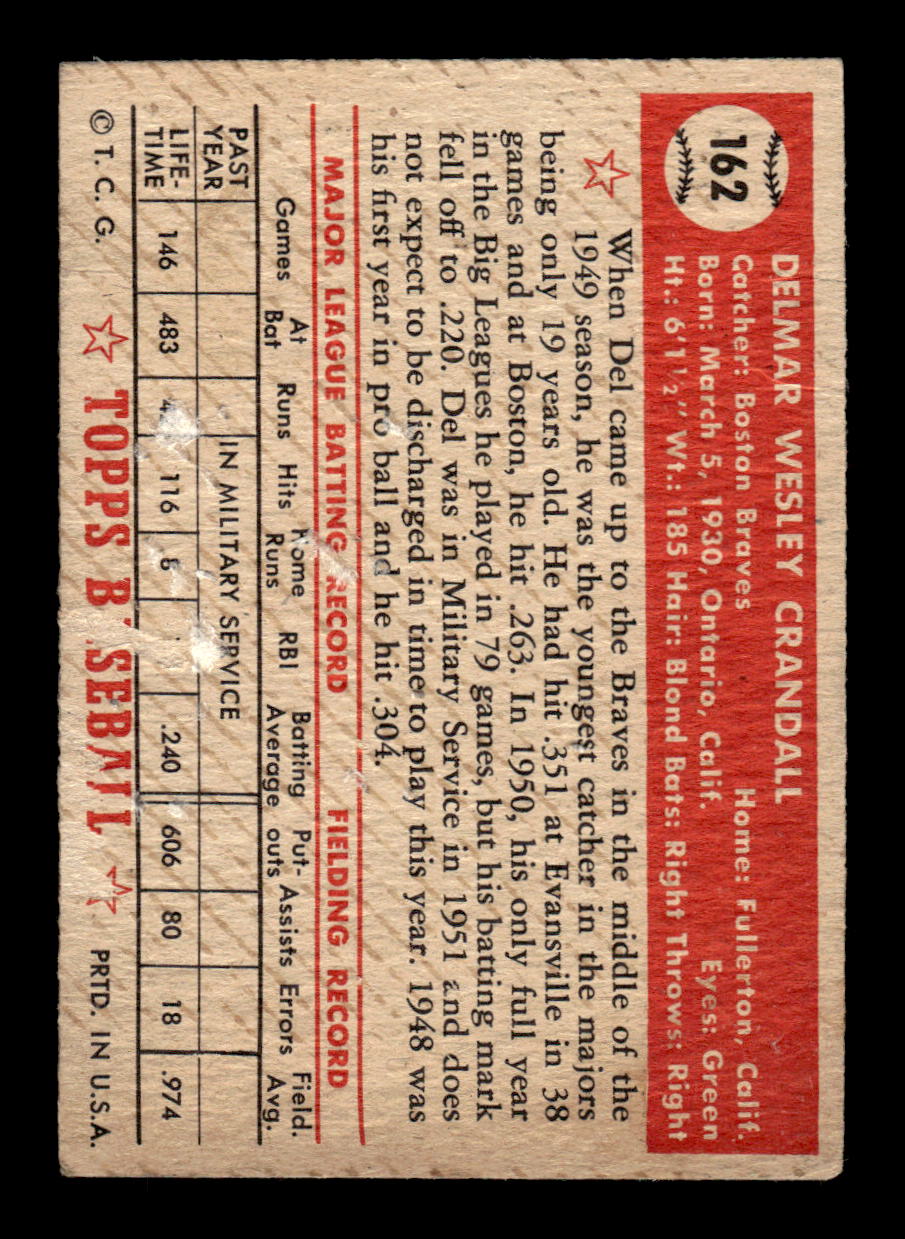 162
DELMAR WESLEY CRANDALL
Catcher: Boston Braves Home: Fullerton, Calif.
Born: March 5, 1930, Ontario, Calif. Eyes: Green
Ht.: 6'1½" Wt.: 185 Hair: Blond Bats: Right Throws: Right
When Del came up to the Braves in the middle of the
1949 season, he was the youngest catcher in the majors
being only 19 years old. He had hit .351 at Evansville in 38
games and at Boston, he hit .263. In 1950, his only full year
in the Big Leagues he played in 79 games, but his batting mark
fell off to .220. Del was in Military Service in 1951 and does
not expect to be discharged in time to play this year. 1948 was
his first year in pro ball and he hit .304.
MAJOR LEAGUE BATTING RECORD FIELDING RECORD
Games At Bat Runs Hits Home Runs RBI Batting Average Put-outs Assists Errors Field. Avg.
PAST YEAR IN MILITARY SERVICE
LIFE-TIME 146 483 116 8 .240 606 80 18 .974
© T. C. G. TOPPS B SEBALL PRTD. IN U.S.A.